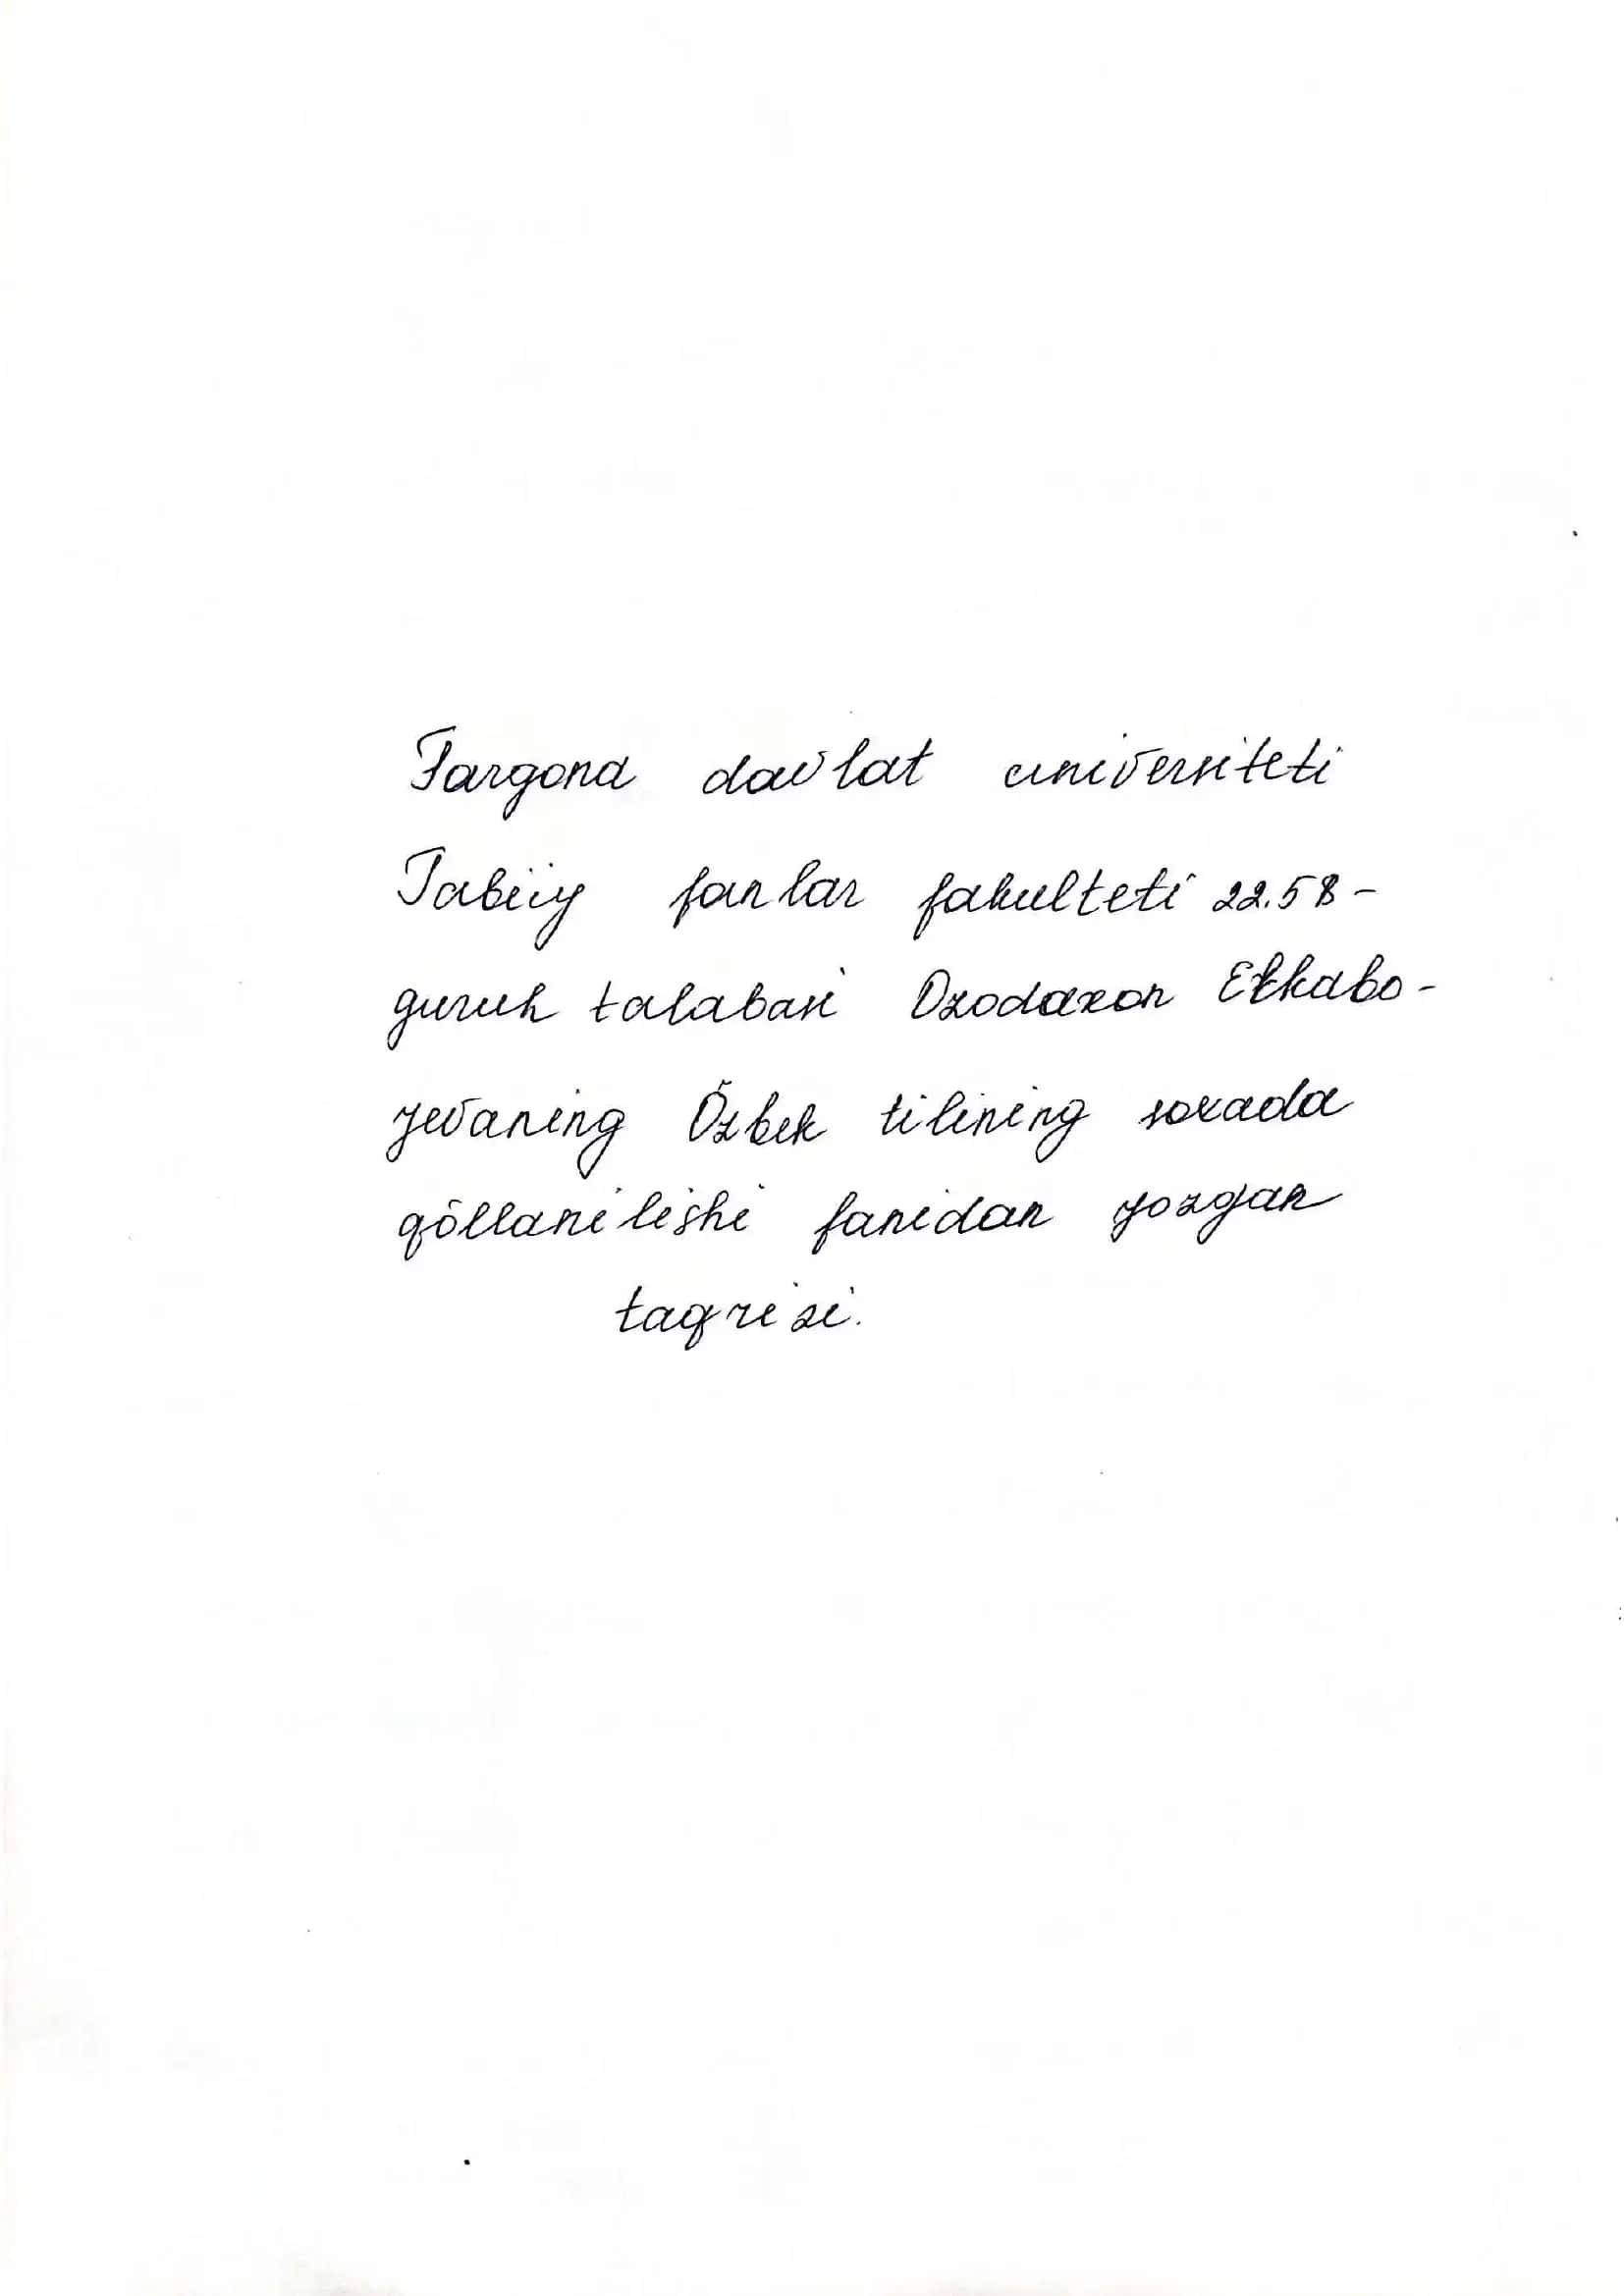 Fargona davlat universiteti
Tabiiy fanlar fakulteti 22.58-
guruh talabasi Ozodaxon Etkabo-
yevaning Õzbek tilining soxada
qõllanilishi fanidan yozgan
taqrizi.